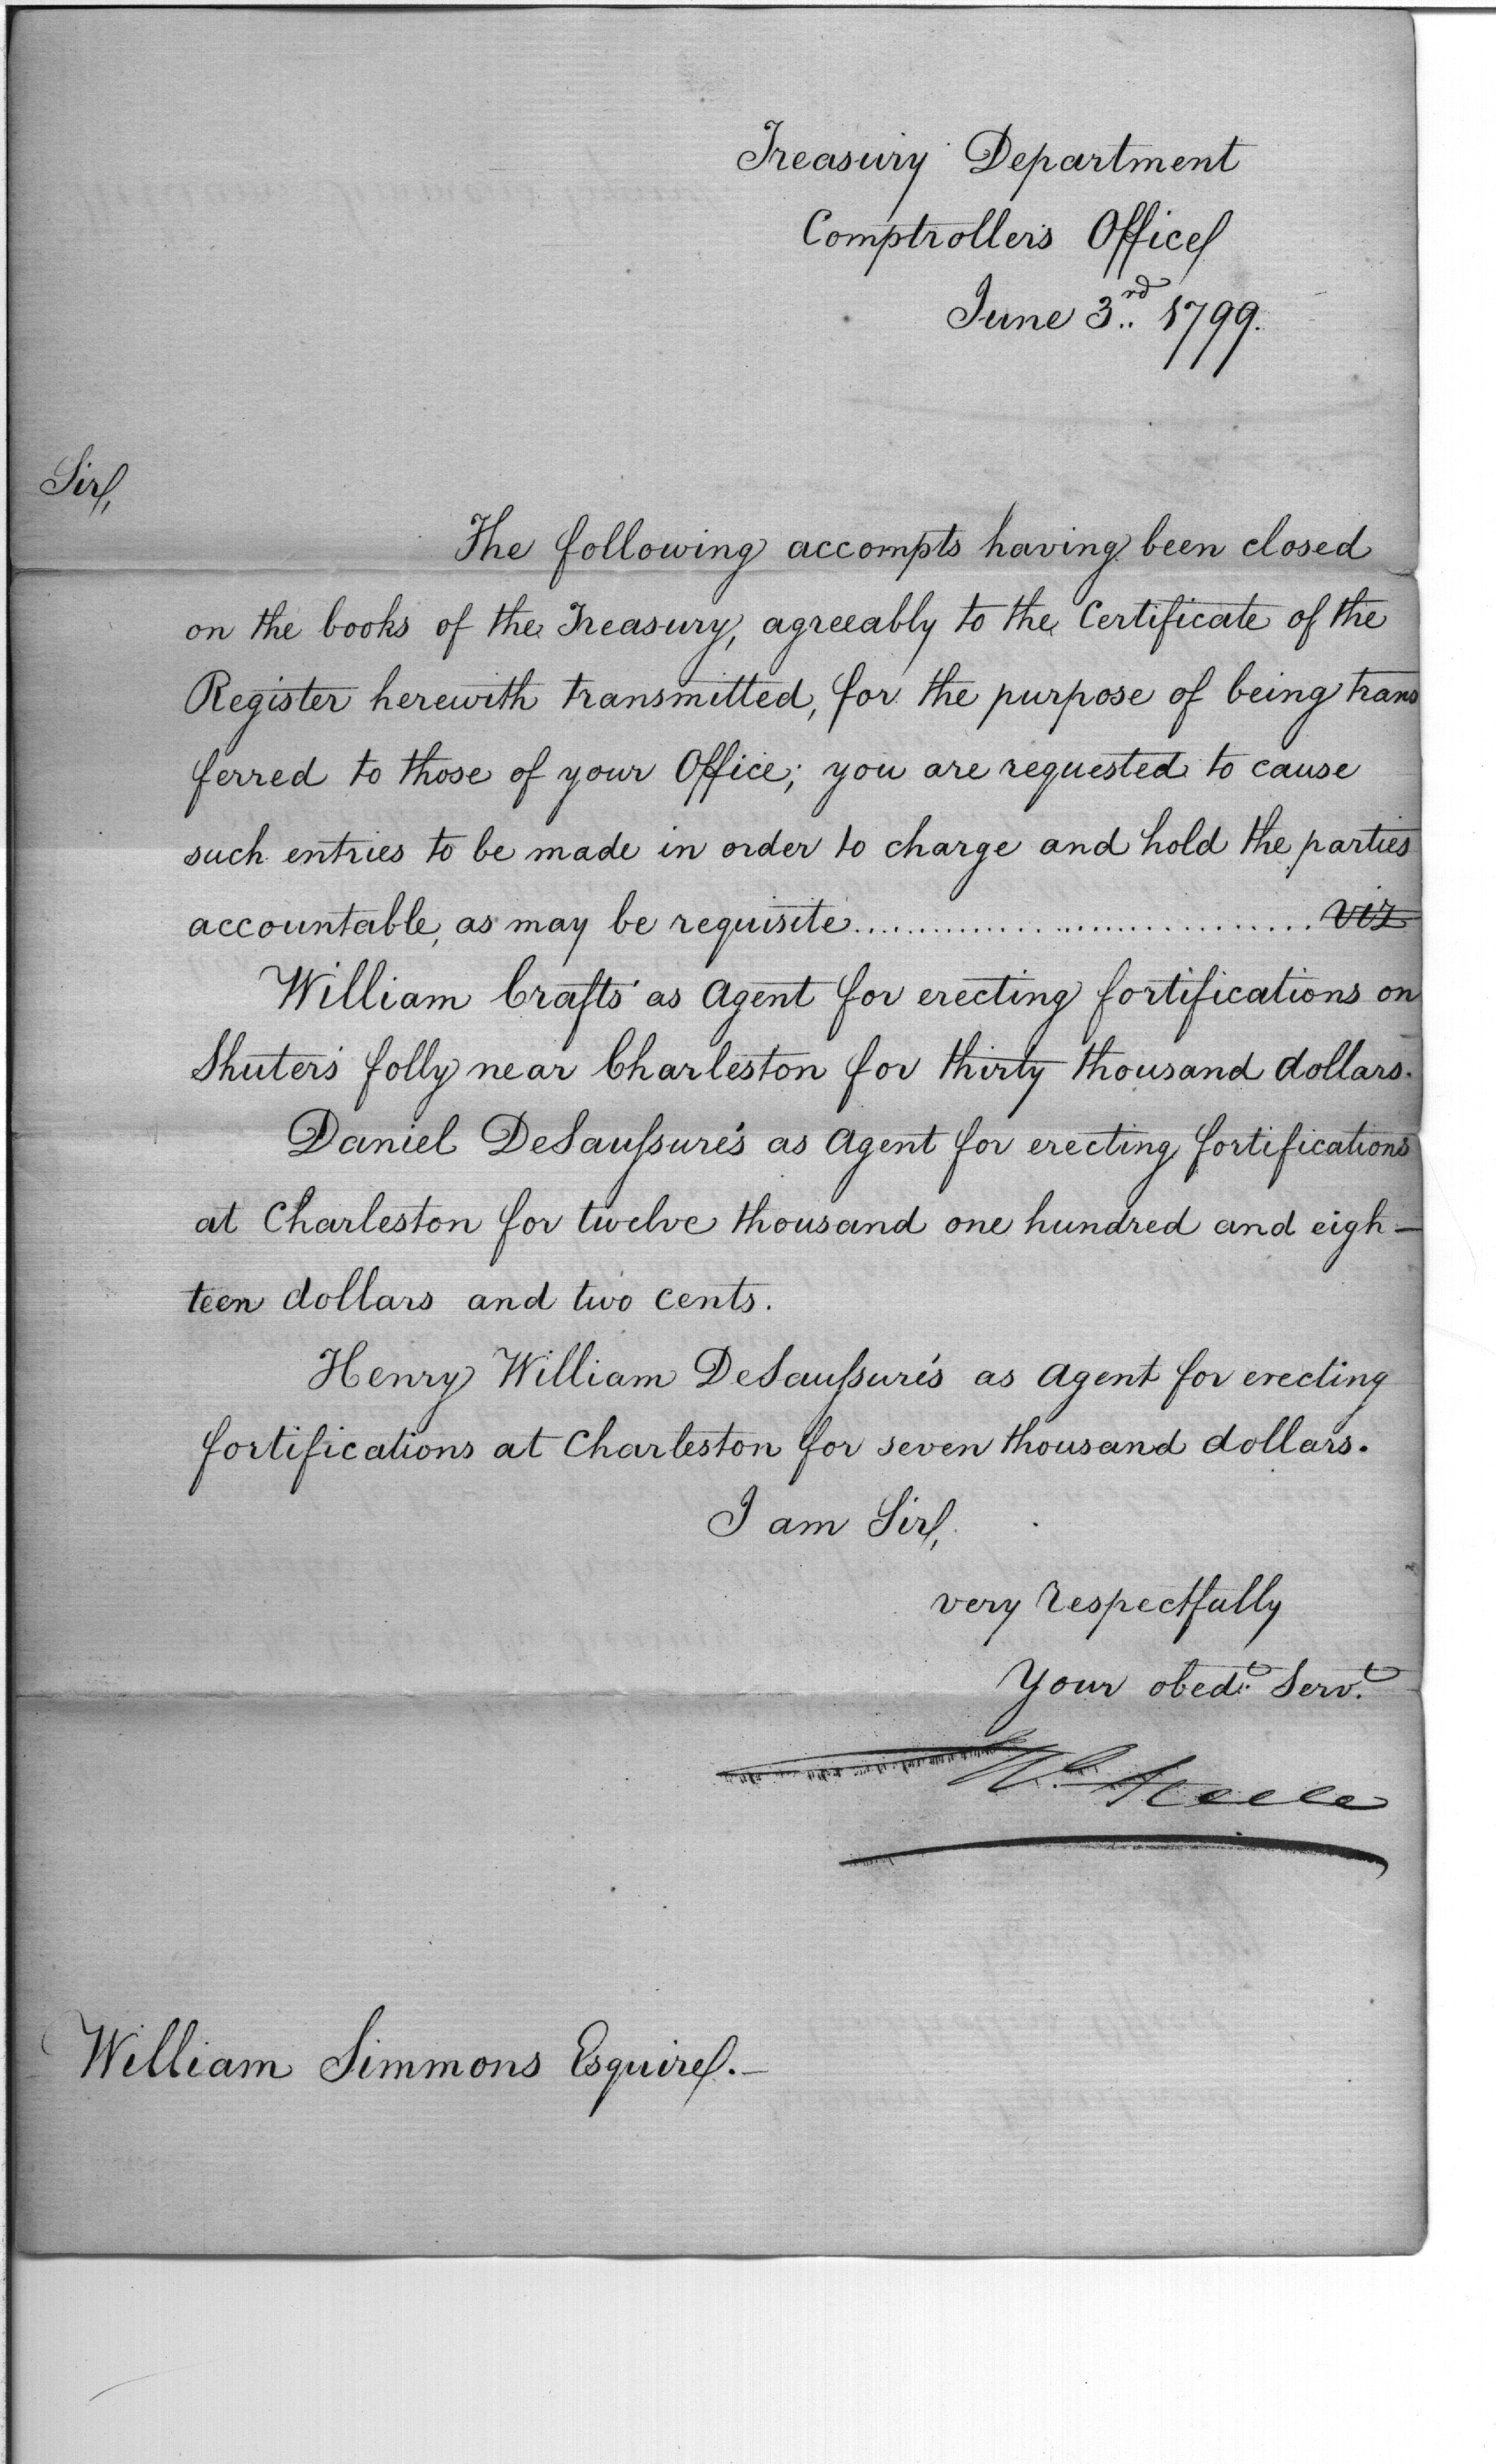 Treasury Department
Comptroller's Office
June 3rd 1799.
Sir,
The following accompts having been closed
on the books of the Treasury, agreeably to the Certificate of the
Register herewith transmitted, for the purpose of being trans
ferred to those of your Office; you are requested to cause
such entries to be made in order to charge and hold the parties
accountable, as may be requisite................................ viz
William Crafts' as Agent for erecting fortifications on
Shuter's folly near Charleston for thirty thousand dollars.
Daniel DeSaussure's as Agent for erecting fortifications
at Charleston for twelve thousand one hundred and eigh-
teen dollars and two cents.
Henry William DeSaussure's as Agent for erecting
fortifications at Charleston for seven thousand dollars.
I am Sir,
very respectfully
Your obedt. Servt.
Steele
William Simmons Esquire.-